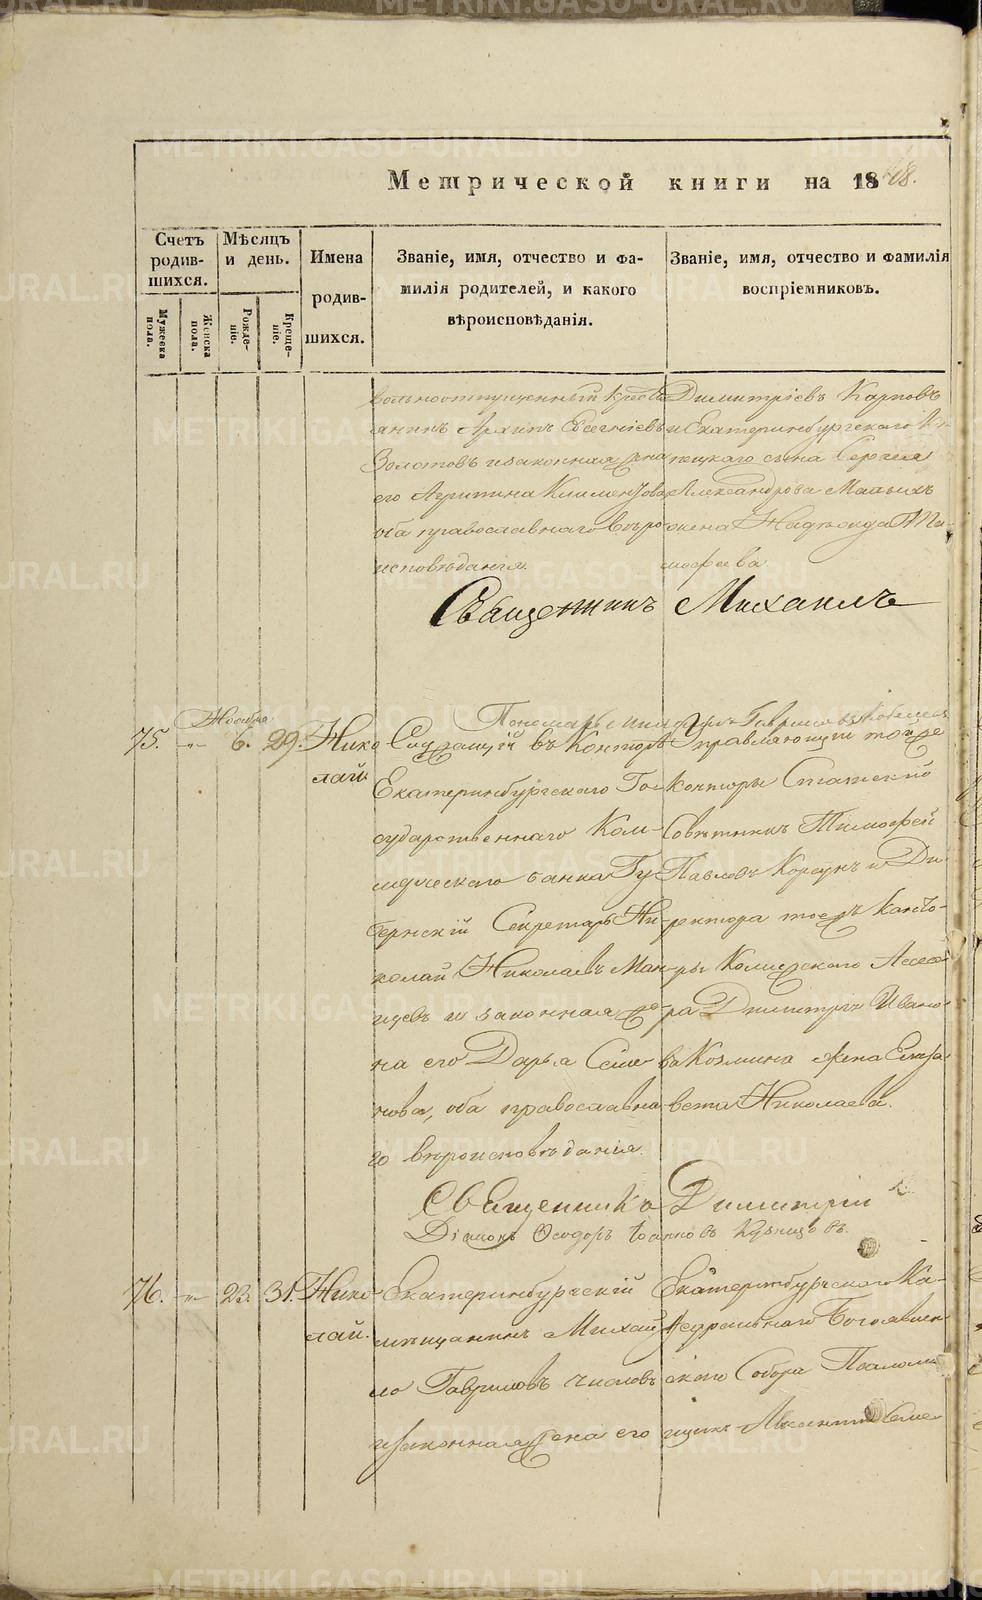 Метрической книги на 1848.
Счетъ родив-шихся.
Мужеска пола.
Женска пола.
Мѣсяцъ и день.
Рожде-ніе.
Креще-ніе.
Имена родив-шихся.
Званіе, имя, отчество и фа-
милія родителей, и какого
вѣроисповѣданія.
Званіе, имя, отчество и фамилія
воспріемниковъ.
вольноотпущенный кресть
янинъ Архипъ
Золотовъ и законная жена
его Агрипина Климентова
оба православнаго вѣро
исповѣданія.
Димитріевъ Карповъ
и Екатеринбургскаго Ку-
пецкаго сына Сергея
Александрова Малыхъ
жена Надежда Ти-
мофеева
Священникъ Михаилъ
Пономарь Гавриловъ
Ноября
75. 6. 29. Нико
лай
Служащій въ Конторѣ
Екатеринбургскаго Го-
сударственнаго Ком-
мерческаго банка Гу-
бернскій Секретарь Ни-
колай Николаевъ Ман-
цевъ и законная же-
на его Дарья Семе-
нова, оба православна-
го вѣроисповѣданія.
Управляющій той же
конторы Статскій
Совѣтникъ Тимофей
Павловъ Корсунъ и Ди-
ректора тоежъ Конто-
ры Коллежскаго Ассесо
ра Димитрія Ивано-
ва Козмина жена Елиза-
вета Николаева.
Священникъ Димитрій
Діаконъ Ѳеодоръ Іоанновъ
76. 23. 31. Нико-
лай.
Екатеринбургскій
мѣщанинъ Михай
ло Гавриловъ
и законная жена его
Екатеринбургскаго Ка-
ѳедральнаго Богоявлен
скаго Собора Псалом-
щикъ
METRIKI.GASO-URAL.RU